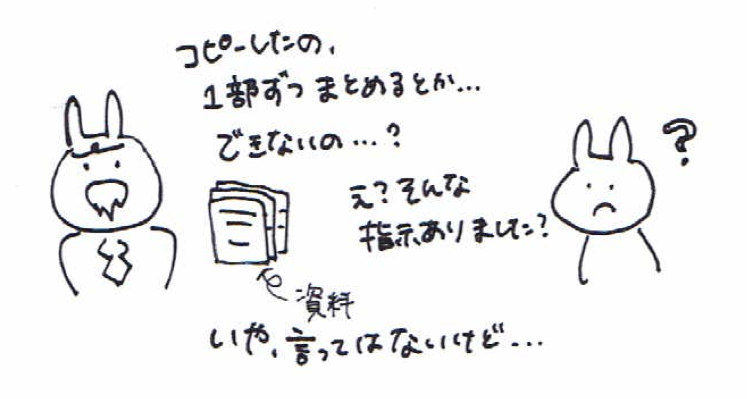 コピーしたの、
1部ずつまとめるとか...
できないの...?
え?そんな
指示ありました?
?
資料
いや、言ってはないけど...